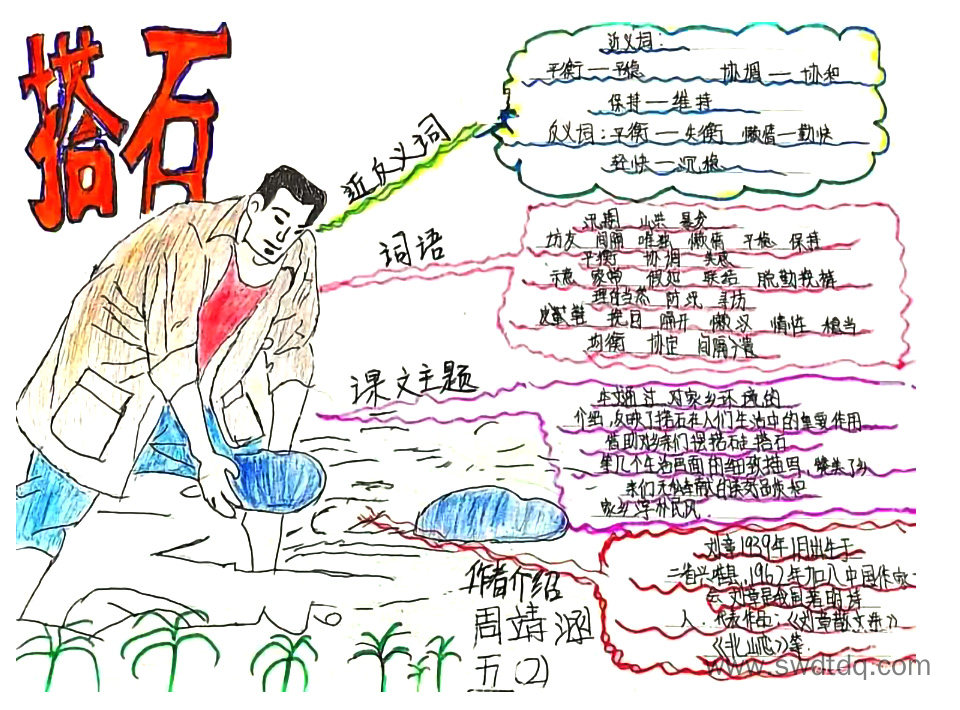 搭石
近反义词
近义词：
平衡—平稳 协调—协和
保持—维持
反义词：平衡—失衡 懒惰—勤快
轻快—沉稳
词语
汛期 山洪 暴发
访友 间隔 唯独 懒惰 平稳 保持
平衡 协调
示意 家常 俗 联结 脱鞋挽裤
理所当然 寻访
隔开 惰性 相当
均衡 协定 间隔
课文主题
通过对家乡环境的
介绍，反映了搭石在人们生活中的重要作用
借助对乡亲们摆搭石走搭石
等几个生活画面的细致描写，赞美了乡
亲们无私奉献的美好品质和
家乡淳朴民风．
作者介绍
刘章1939年1月出生于
省兴隆县，1962年加入中国作家
会刘章是我国著名诗
人．代表作品：《刘章散文集》
《北山恋》等．
周靖涵
五(2)
www.swdtdq.com